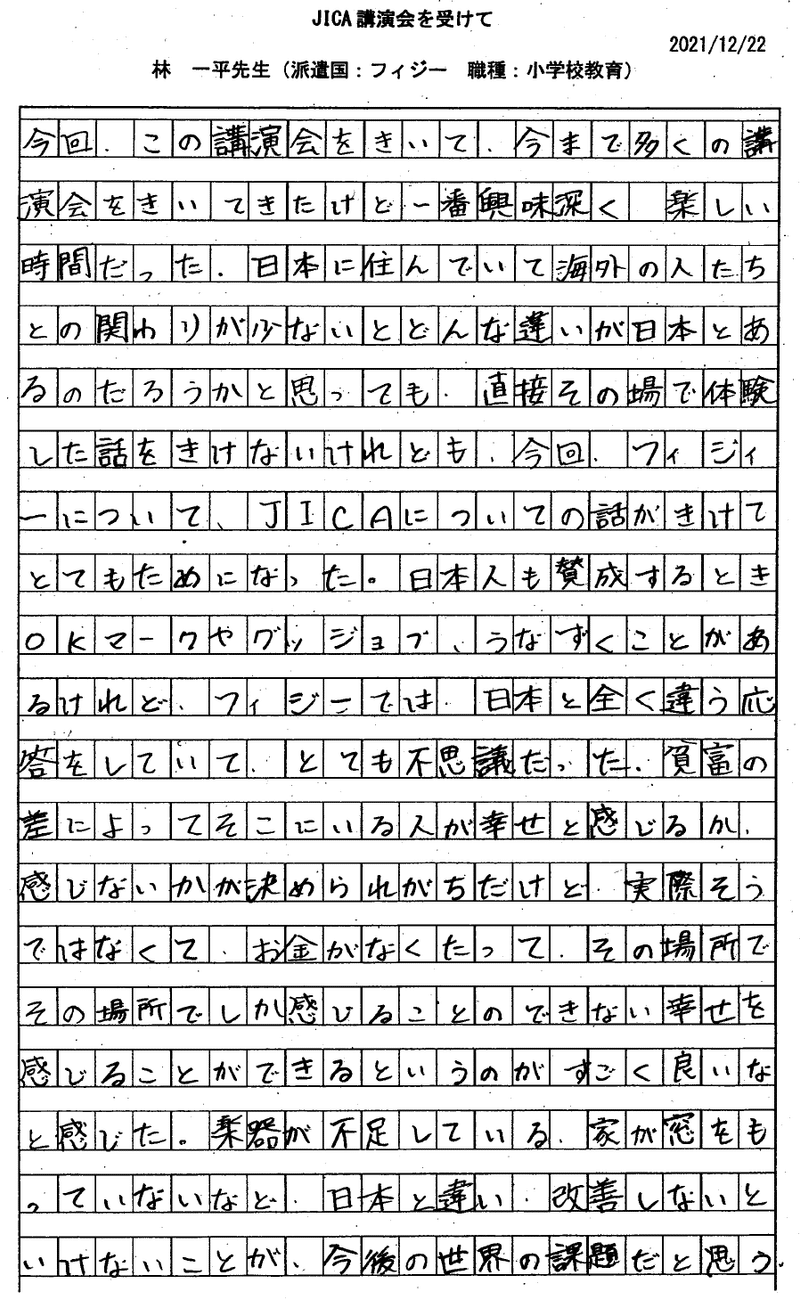 JICA講演会を受けて
2021/12/22
林 一平先生（派遣国：フィジー 職種：小学校教育）
今回、この講演会をきいて、今まで多くの講
演会をきいてきたけど一番興味深く 楽しい
時間だった、日本に住んでいて海外の人たち
との関わりが少ないとどんな違いが日本とあ
るのだろうかと思っても、直接その場で体験
した話をきけないけれども、今回、フィジィ
ーについて、JICAについての話がきけて
とてもためになった。日本人も賛成するとき
OKマークやグッジョブ、うなずくことがあ
るけれど、フィジーでは、日本と全く違う応
答をしていて、とても不思議だった、貧富の
差によってそこにいる人が幸せと感じるか、
感じないかが決められがちだけど、実際そう
ではなくて、お金がなくたって、その場所で
その場所でしか感じることのできない幸せを
感じることができるというのがすごく良いな
と感じた。楽器が不足している、家が窓をも
っていないなど、日本と違い、改善しないと
いけないことが、今後の世界の課題だと思う、